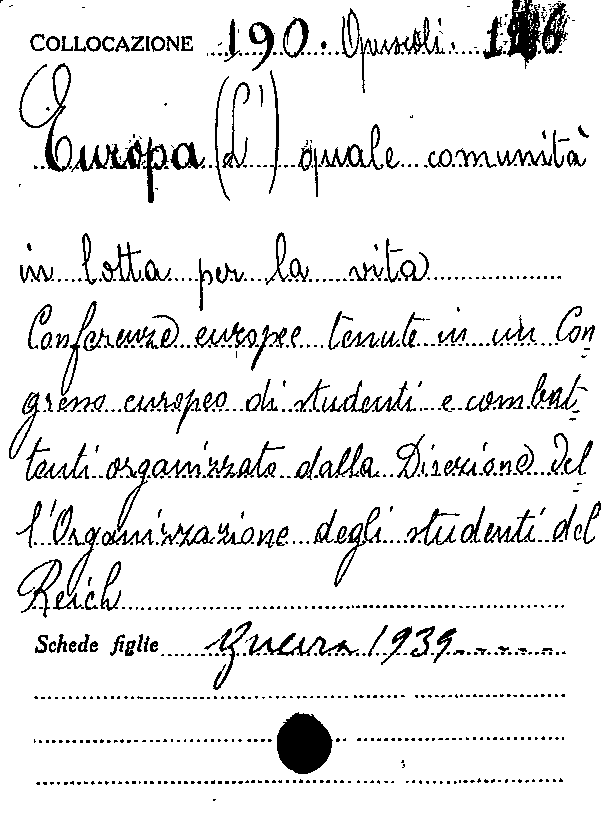 COLLOCAZIONE 190. Opuscoli.
Europa (L') quale comunità
in lotta per la vita
Conferenze europee tenute in un Con=
gresso europeo di studenti e combat=
tenti organizzato dalla Direzione del=
l'Organizzazione degli studenti del
Reich
Schede figlie Guerra 1939.....